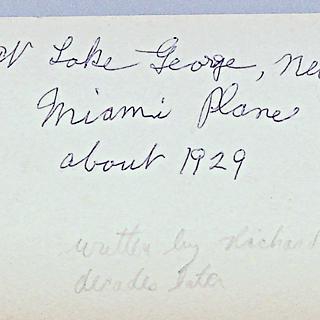 Lake George, Ne
Miami Plane
about 1929
written by Richard
decades later